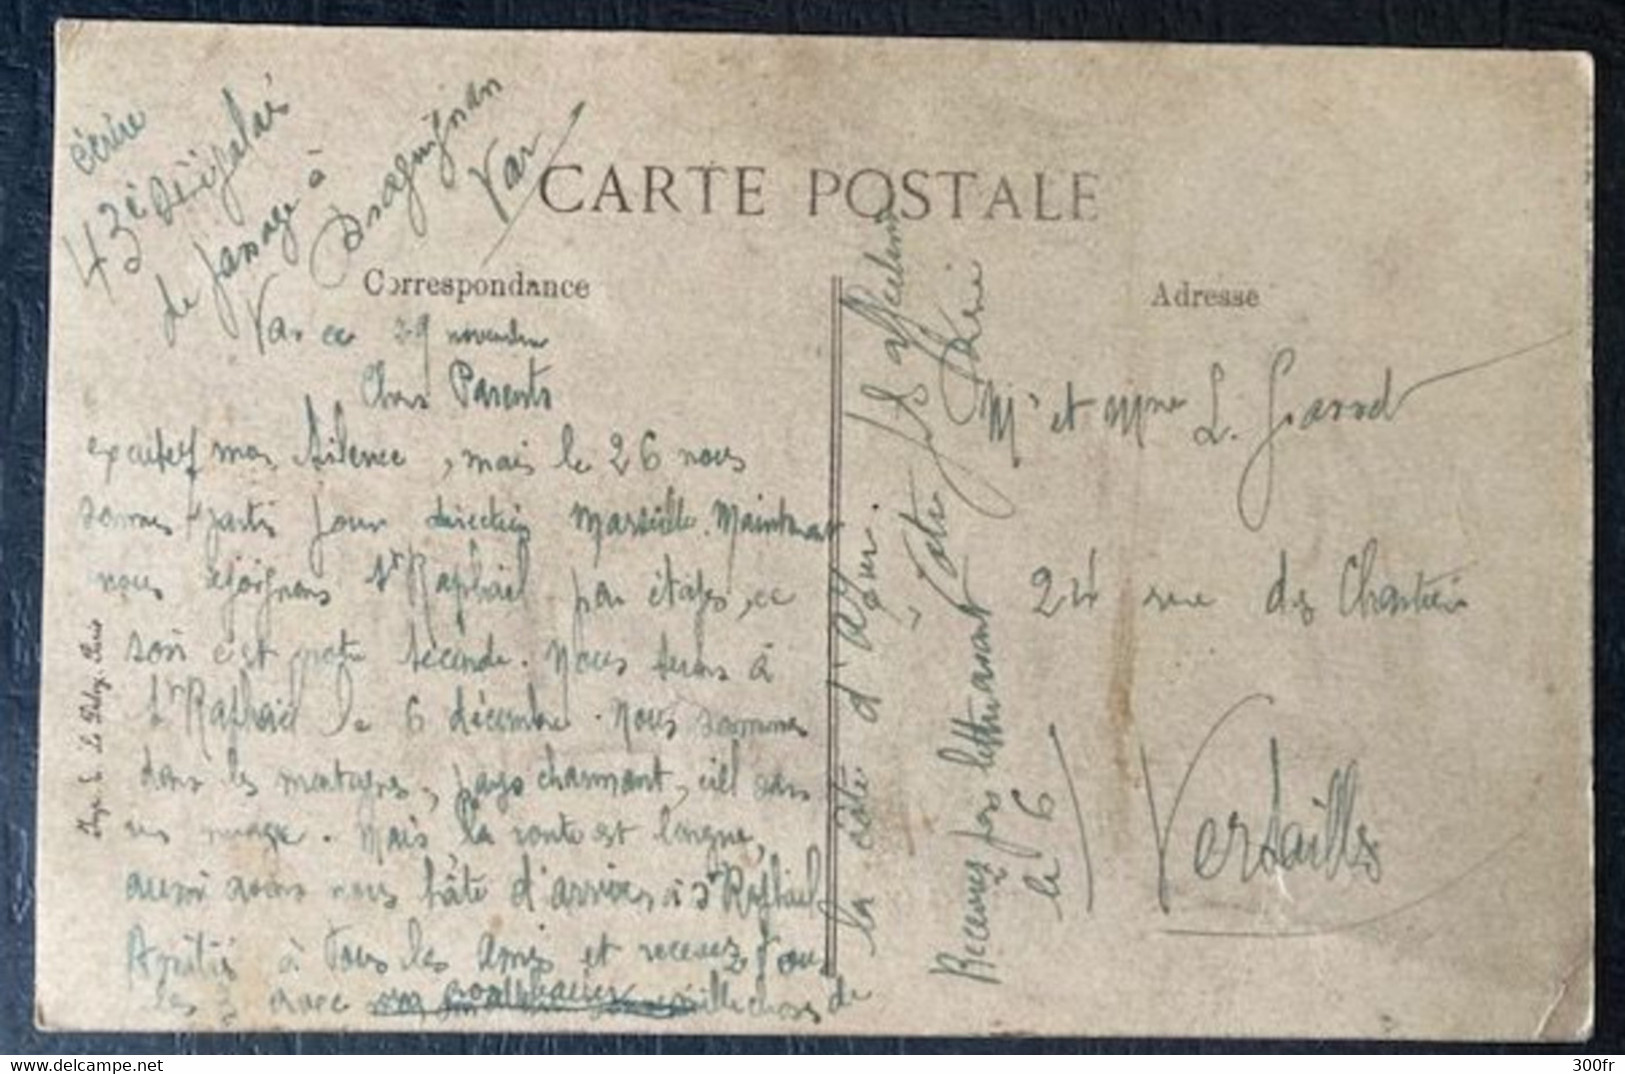 écrire
43e Sénégalais
de passage à
Draguignan
Var
CARTE POSTALE
Correspondance
Var ce 29 novembre
Chers Parents
excusez mon silence, mais le 26 nous
sommes partis pour direction Marseille. Maintenant
nous rejoignons St Raphaël par étapes, ce
soir c'est notre seconde. Nous serons à
St Raphaël le 6 décembre. Nous sommes
dans les montagnes, pays charmant, ciel sans
un nuage. Mais la route est longue,
aussi avons nous hâte d'arriver à St Raphaël
Amitiés à tous les amis et recevez tous
les 2 avec mille choses de
la côte d'azur.
Votre fils affectionné
René
Recevrez pas lettre avant
le 6
Adresse
Mr et Mme L. Girard
24 rue des Chantiers
Versailles
Imp. E. Le Deley, Paris
300fr